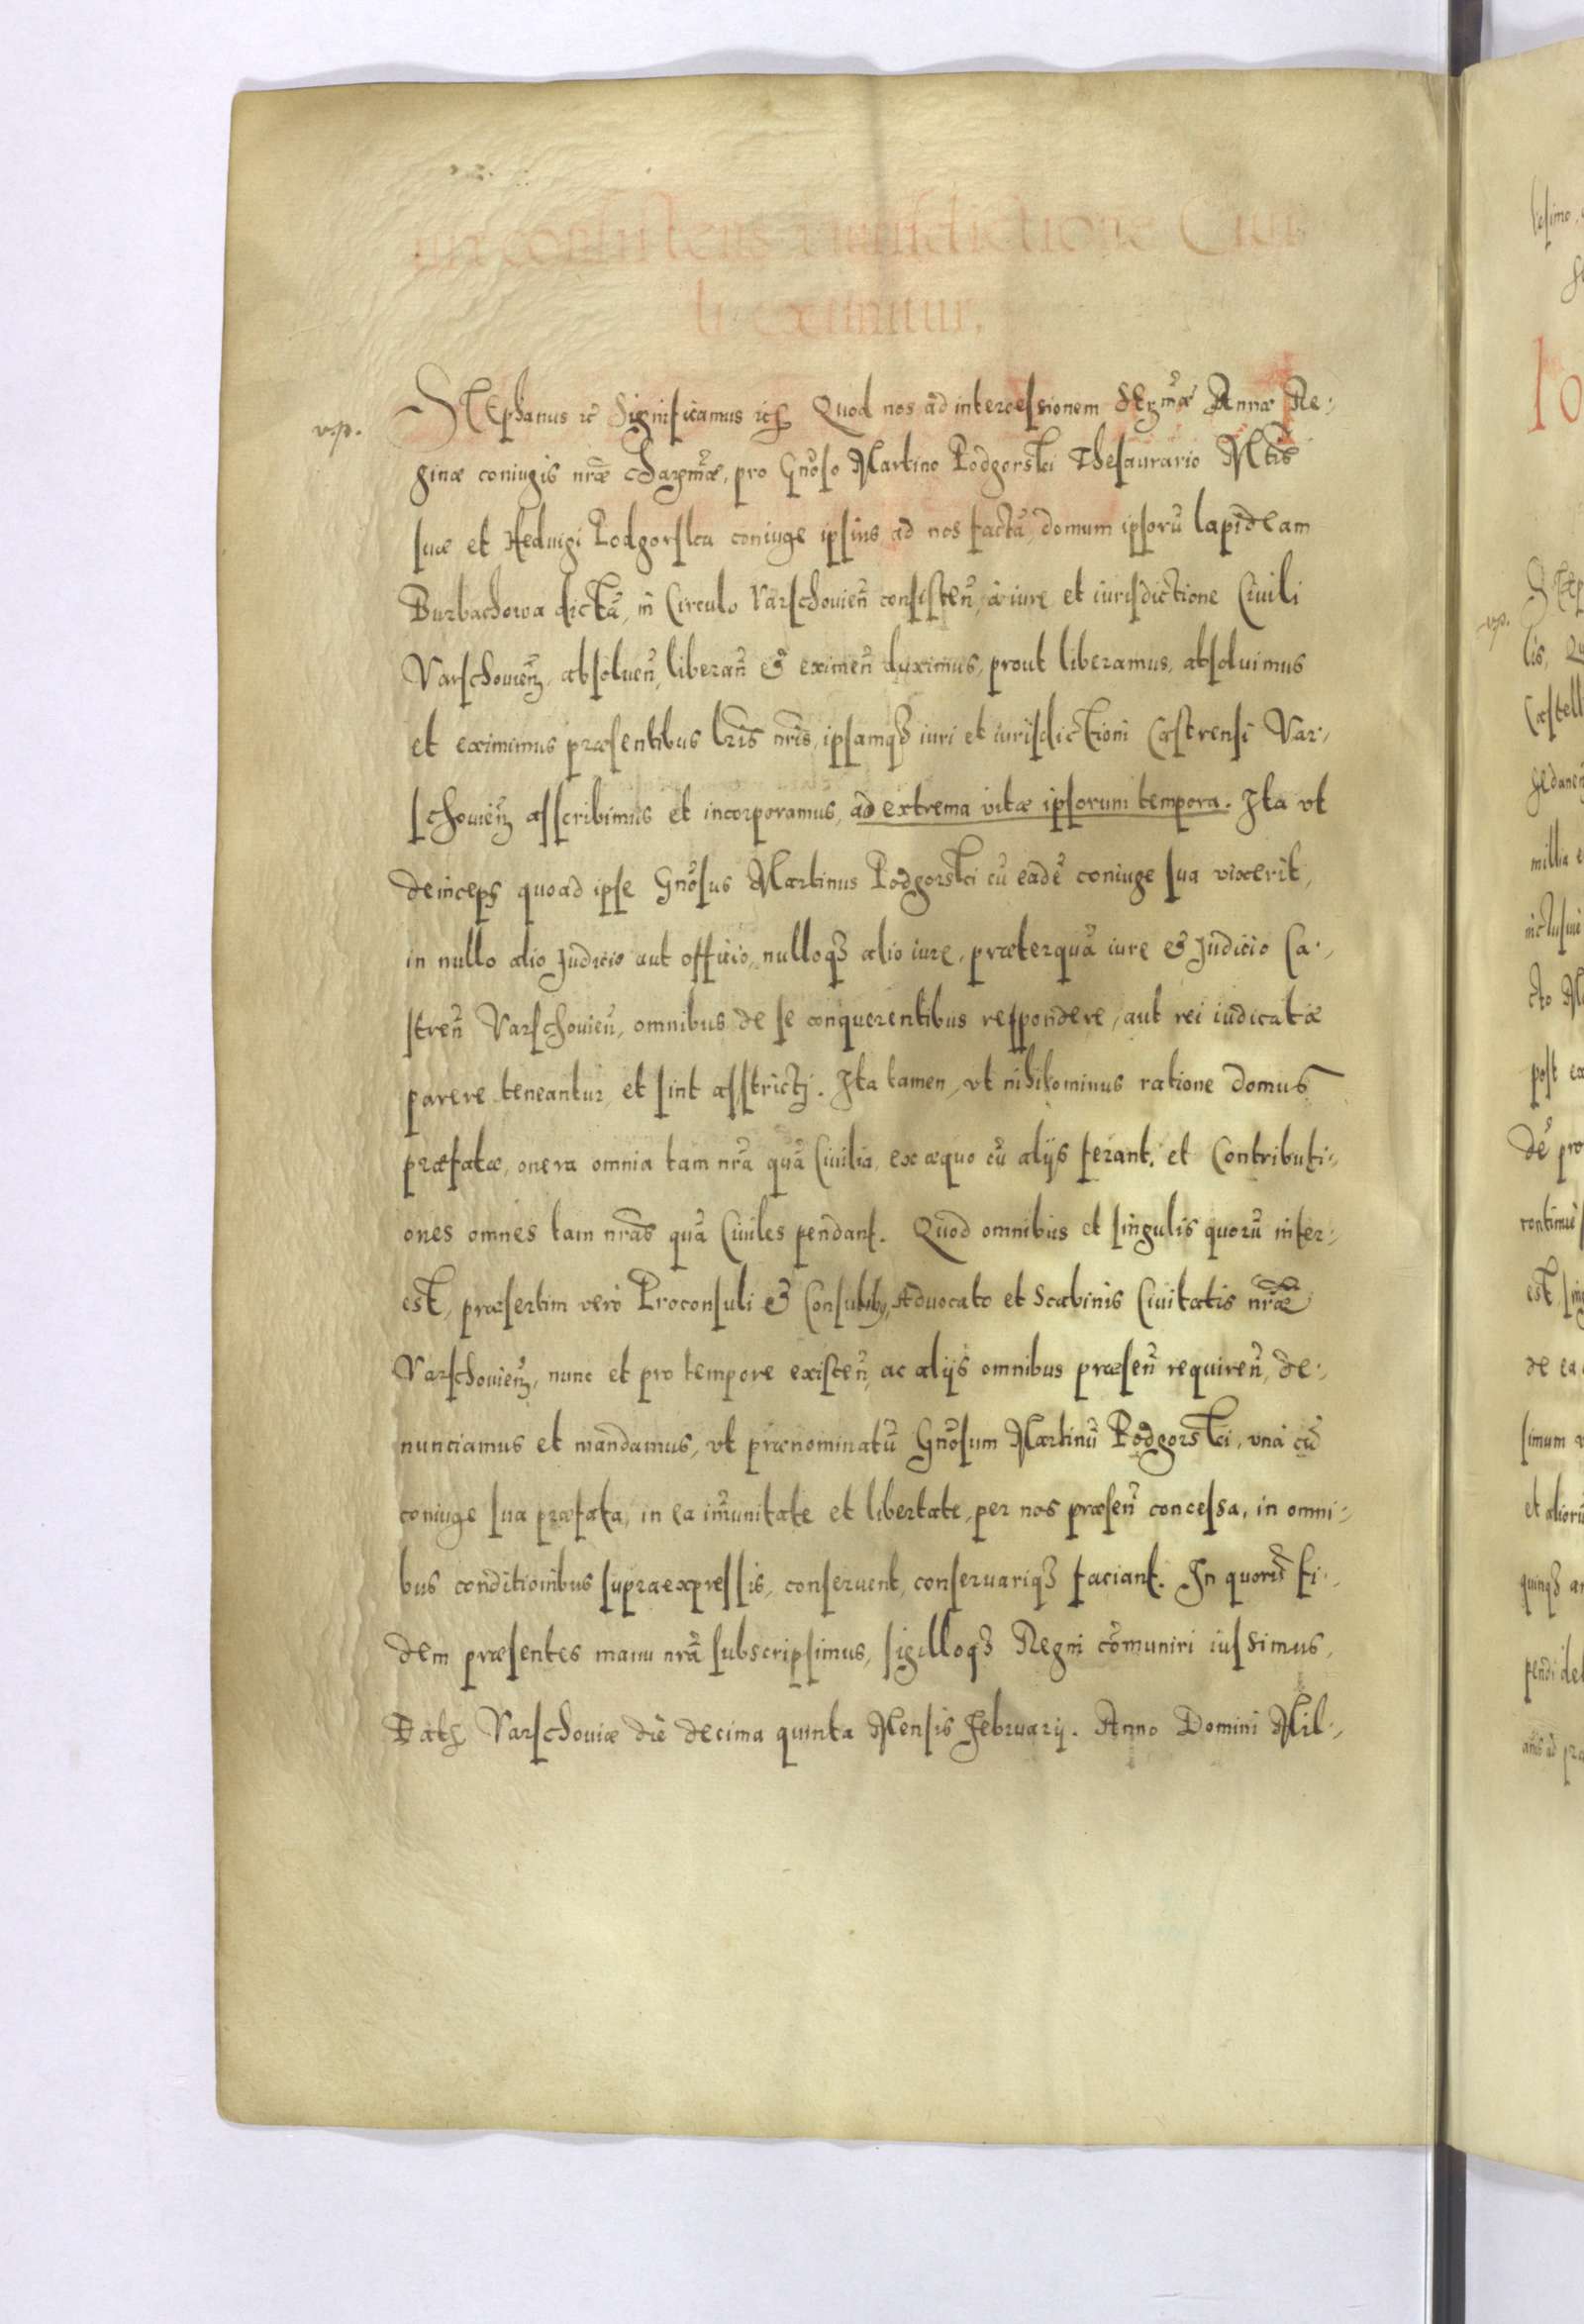 uia consistens iurisdictione Ciui
li eximitur.
v.p.
STEphanus etc Significamus etc Quod nos ad intercessionem SEr̄mæ Annæ Re:
ginæ coniugis nr̄æ Char̄mæ, pro Gn̄oso Martino Podgorski Thesaurario Mt̄is
suæ et Heduigi Podgorska coniuge ipsius ad nos factā, domum ipsorū lapideam
Burbachowa dictā, in Circulo Varschouien̄ consisten̄, a iure et iurisdictione Ciuili
Varschouien̄, absoluen̄, liberan̄ & eximen̄ duximus, prout liberamus, absoluimus
et eximimus præsentibus lr̄is nr̄is, ipsamq₃ iuri et iurisdictioni Castrensi Var:
schouien̄ asscribimus et incorporamus, ad extrema vitæ ipsorum tempora. Ita vt
deinceps quoad ipse Gn̄osus Martinus Podgorski cū eadē coniuge sua vixerit,
in nullo alio Judicio aut officio, nulloq₃ alio iure, præterquā iure & Judicio Ca:
stren̄ Varschouien̄, omnibus de se conquerentibus respondere, aut rei iudicatæ
parere teneantur et sint asstricti. Ita tamen, vt nihilominus ratione domus
præfatæ, onera omnia tam nr̄a quā Ciuilia, ex æquo cū alijs ferant, et Contributi:
ones omnes tam nr̄as quā Ciuiles pendant. Quod omnibus et singulis quorū inter:
est, præsertim vero Proconsuli & Consulibus, Aduocato et Scabinis Ciuitatis nr̄æ
Varschouien̄, nunc et pro tempore existen̄, ac alijs omnibus præsen̄ requiren̄, de:
nunciamus et mandamus, vt prænominatū Gn̄osum Martinū Podgorski, vna cū
coniuge sua præfata, in ea im̄unitate et libertate, per nos præsen̄ concessa, in omni:
bus conditionibus supraexpressis, conseruent, conseruariq₃ faciant. In quorū fi:
dem præsentes manu nr̄a subscripsimus, sigilloq₃ Regni com̄uniri iussimus.
Dat₃ Varschouiæ die decima quinta Mensis Februarij. Anno Domini Mil: